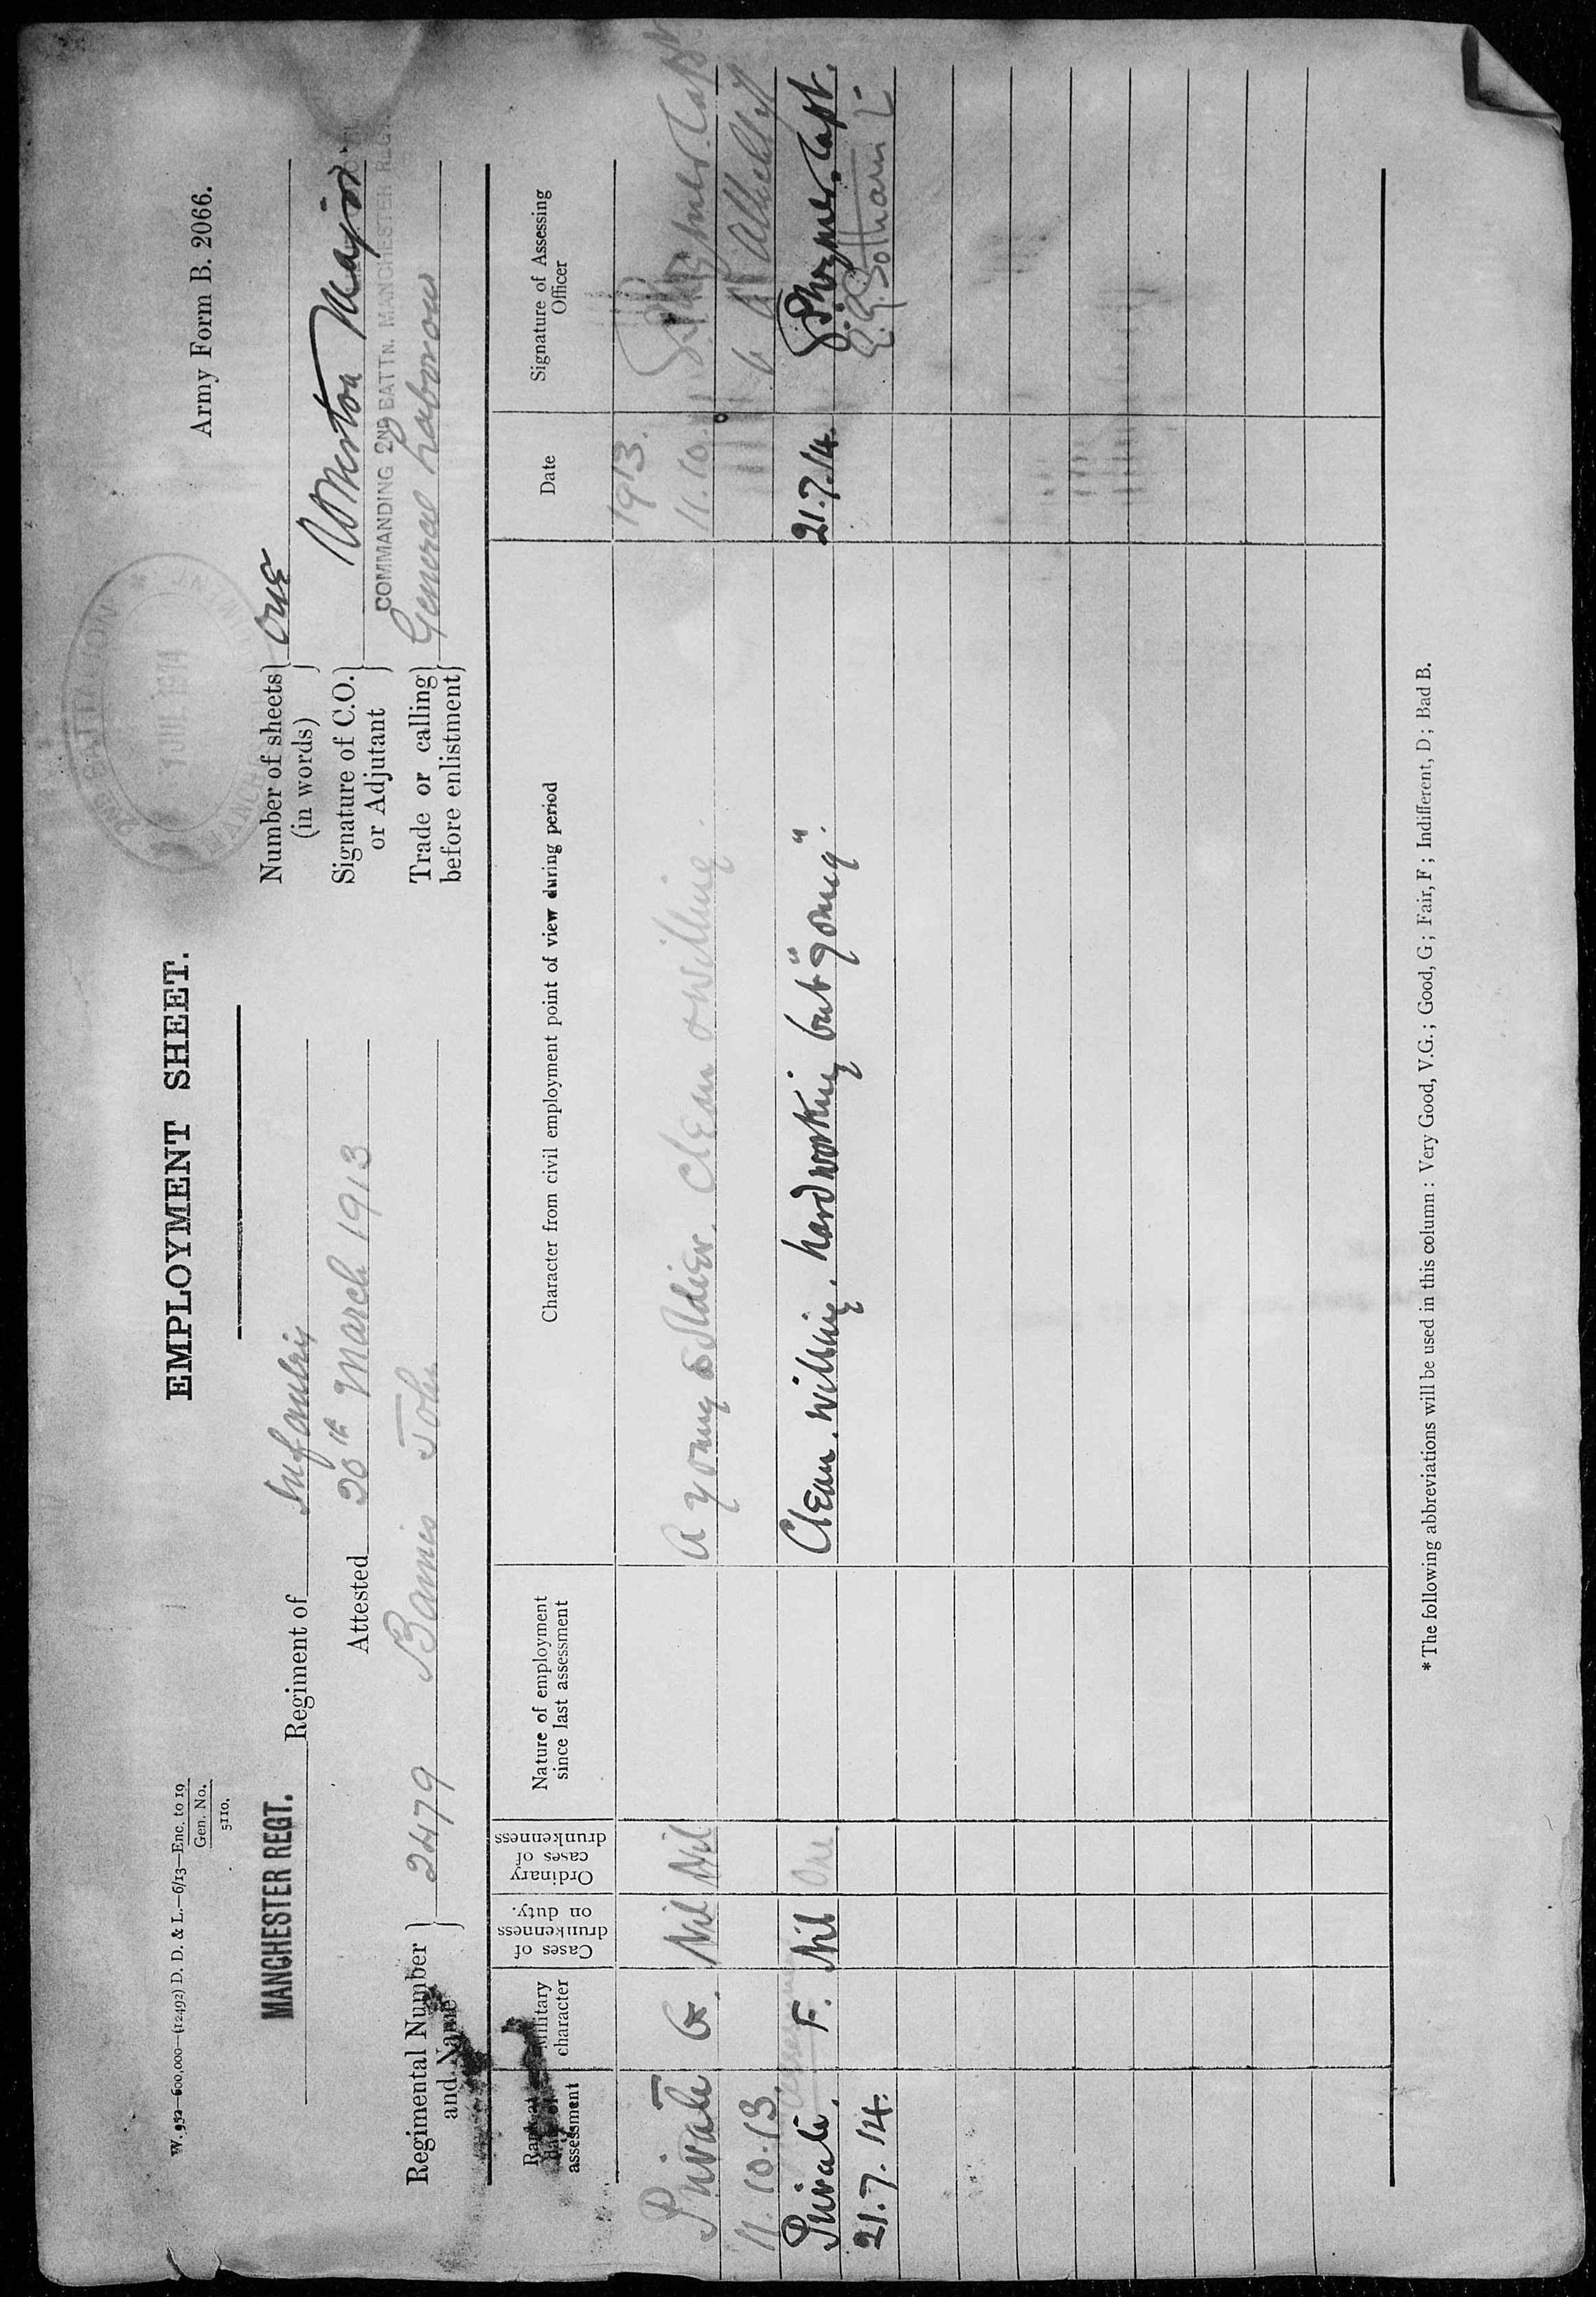 W. 952—600,000—(12492) D. D. & L.—6/13—Enc. to 19
Gen. No.
5110.
EMPLOYMENT SHEET.
Army Form B. 2066.
2ND BATTALION
JUL 1914
MANCHESTER REGT. Regiment of Infantry
Attested 20th March 1913
Regimental Number and Name } 2479
John
Number of sheets (in words) } One
Signature of C.O. or Adjutant } Major
COMMANDING 2ND BATTN. MANCHESTER REGT.
Trade or calling before enlistment } General Labourer
Rank at date of assessment
Military character
Cases of drunkenness on duty.
Ordinary cases of drunkenness
Nature of employment since last assessment
Character from civil employment point of view during period
Date
Signature of Assessing Officer
1913.
Private G. Nil Nil A young soldier. Clean & willing. 11.10. Capt
11.10.13.
Private. F. Nil One Clean, willing, hardworking but "young". 21.7.14. Capt.
21.7.14.
* The following abbreviations will be used in this column : Very Good, V.G. ; Good, G ; Fair, F ; Indifferent, D ; Bad B.